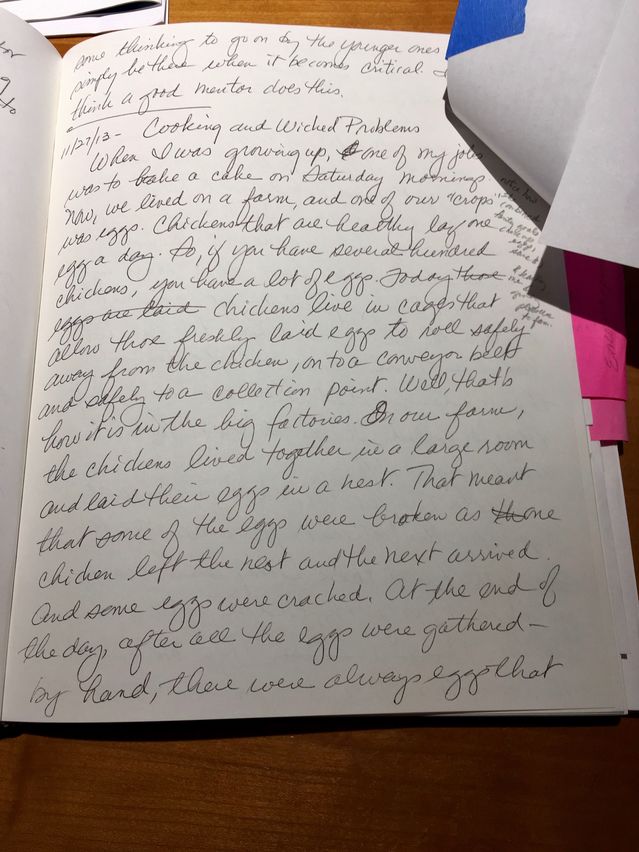 some thinking to go on by the younger ones
simply be there when it becomes critical. I
think a good mentor does this.
11/27/13 - Cooking and Wicked Problems
When I was growing up, one of my jobs
was to bake a cake on Saturday mornings.
Now, we lived on a farm, and one of our "crops"
was eggs. Chickens that are healthy lay one
egg a day. So, if you have several hundred
chickens, you have a lot of eggs. Today those
eggs are laid chickens live in cages that
allow those freshly laid eggs to roll safely
away from the chicken, onto a conveyor belt
and safely to a collection point. Well, that's
how it is in the big factories. On our farm,
the chickens lived together in a large room
and laid their eggs in a nest. That meant
that some of the eggs were broken as one
chicken left the nest and the next arrived.
And some eggs were cracked. At the end of
the day, after all the eggs were gathered -
by hand, there were always eggs that